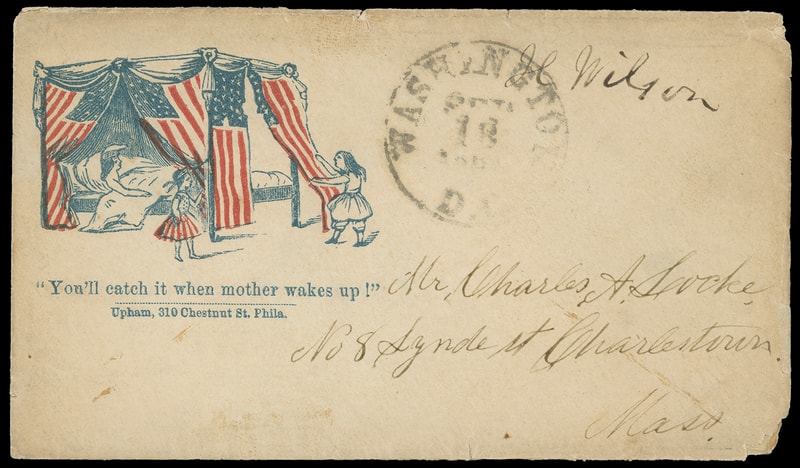 H Wilson
WASHINGTON
SEP
18
D.C.
"You'll catch it when mother wakes up!"
Upham, 310 Chestnut St. Phila.
Mr. Charles A. Locke,
No 8 Lynde st Charlestown.
Mass.